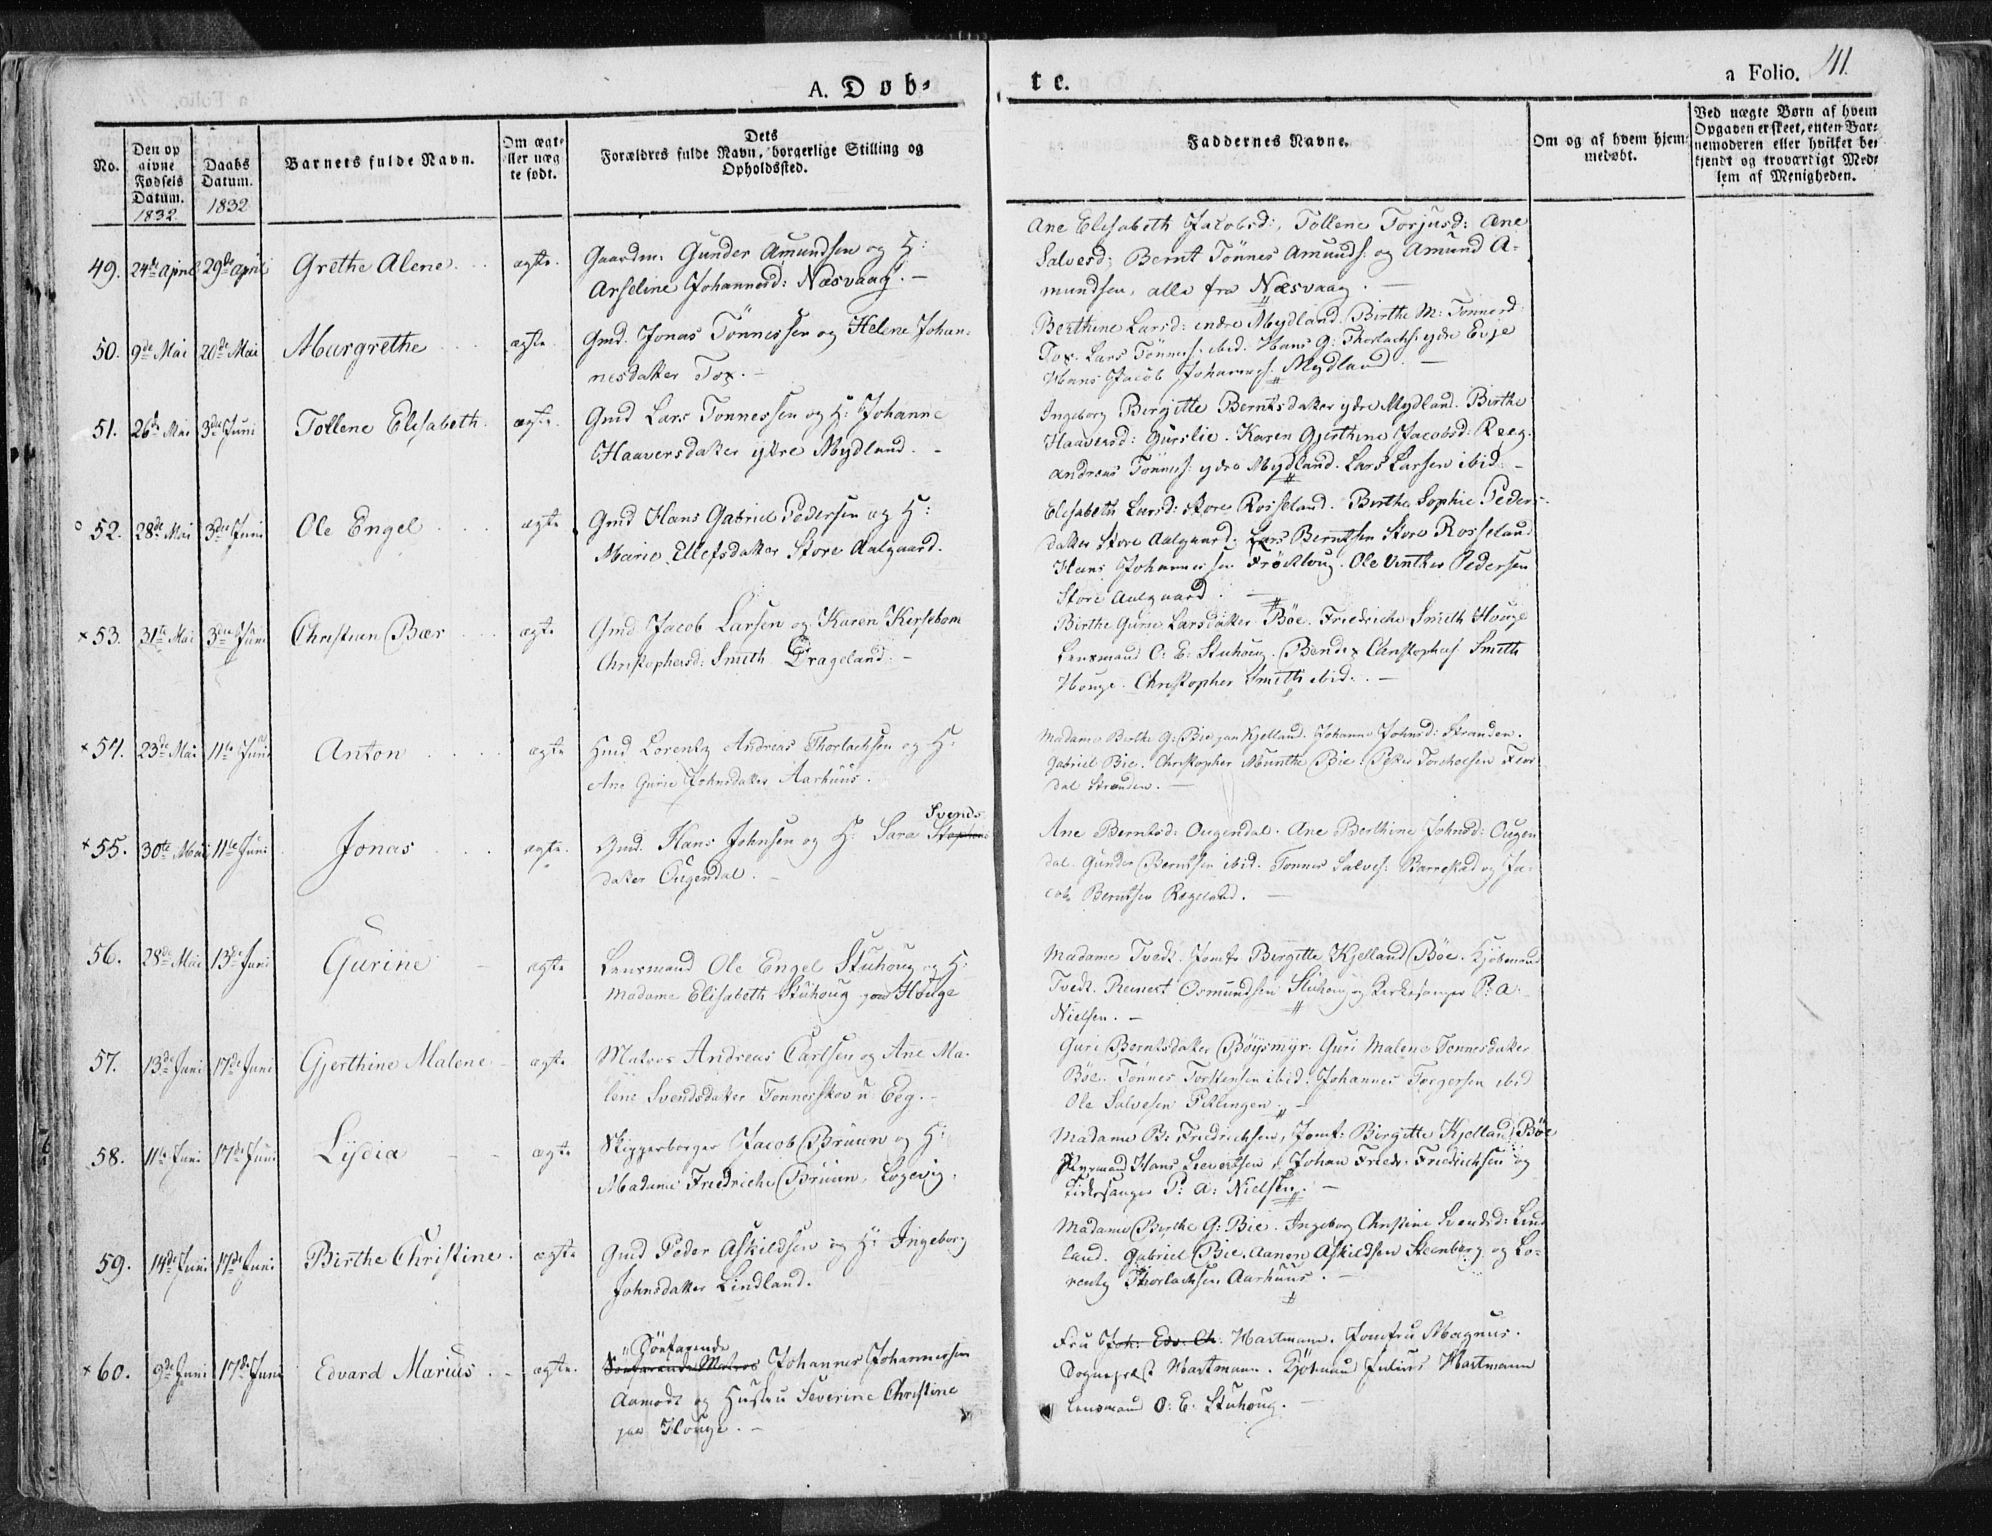 A. Døb-
te.
a Folio. 41.
No.
Den opgivne Fødsels Datum. 1832
Daabs Datum. 1832
Barnets fulde Navn.
Om ægte eller uægte født.
Dets Forældres fulde Navn, borgerlige Stilling og Opholdssted.
Faddernes Navne.
Om og af hvem hjemmedøbt.
Ved uægte Børn af hvem Opgaven er skeet, enten Barnemoderen eller hvilket bekjendt og troværdigt Medlem af Menigheden.
49. 24de April 29de April Grethe Alene. ægte. Gaardm: Gunder Amundsen og H:
Arseline Johannesd: Næsvaag. –
Ane Elisabeth Jacobsd:, Tollene Torjusd: Ane
Salvesd: Bernt Tönnes Amunds: og Amund A-
mundsen, alle fra Næsvaag. –
50. 9de Mai 20de Mai Margrethe ægte Gmd. Jonas Tönnessen og Helene Johan-
nesdatter Tox. –
Berthine Larsd: indre Mydland. Birthe M: Tonnesd:
Tox. Lars Tönness: ibid. Hans G: Thorlachs: ydre Evje
Hans Jacob Johanness: Mydland. –
51. 26de Mai 3die Juni Tollene Elisabeth. ægte. Gmd Lars Tonnessen og H: Johanne
Haaversdatter ydre Mydland. –
Ingeborg Birgitte Berntsdatter ydre Mydland. Birthe
Haaversd: Gurslie. Karen Gjerthine Jacobsd: Reeg.
Andreas Tönness: ydre Mydland. Lars Larsen ibid: –
52. 28de Mai 3die Juni Ole Engel ægte Gmd Hans Gabriel Pedersen og H:
Marie Ellefsdatter Store Aalgaard.
Elisabeth Larsd: store Rosseland. Birthe Sophie Peders-
datter Store Aalgaard. Lars Berntsen Store Rosseland
Hans Johannessen Fröitloug. Ole Vinther Pedersen
Store Aalgaard. –
× 53. 31te Mai 3die Juni Christian Bær ægte Gmd Jacob Larsen og Karen Kirsebom
Christophersd: Smith Drageland. –
Birthe Gurie Larsdatter Böe. Friedriche Smith Houge
Lensmand O: E: Stuhoug. Bendix Christophers: Smith
Houge. Christopher Smith ibid: –
× 54. 23de Mai 11te Juni Anton ægte Hmd Lorentz Andreas Thorlachsen og H:
Ane Gurie Johnsdatter Aarhuus.
Madame Berthe G: Bie paa Kjelland. Johanne Johnsd: Stranden.
Gabriel Bie. Christopher Munthe Bie. Peder Torkelsen
dal Stranden. –
× 55. 30te Mai 11te Juni Jonas ægte. Gmd. Hans Johnsen og H: Sara Svends
datter Ougendal. –
Ane Berntsd: Ougendal. Ane Berthine Johnsd: Ougen
dal. Gunder Berntsen ibid. Tonnes Salves: Barrestad og Ja-
cob Berntsen Rægeland. –
56. 28de Mai 13de Juni Gurine ægte Lensmand Ole Engel Stuhoug og H:
Madame Elisabeth Stuhoug paa Houge
Madame Tvedt. Jomfr. Birgitte Kjelland Böe. Kjöbmand
Tvedt. Reinert Osmundsen Stuhoug og Kirkesanger P: A:
Nielsen. –
57. 13de Juni 17de Juni Gjerthine Malene ægte Matros Andreas Carlsen og Ane Ma-
lene Svendsdatter Tonnesskov u: Eeg. –
Guri Berntsdatter Böysmyr. Guri Malene Tonnesdatter
Böe. Tonnes Torstensen ibid. Johannes Torgersen ibid
Ole Salvesen Pitlingen. –
58. 11te Juni 17de Juni Lydia ægte Skipperborger Jacob Bruun og H:
Madame Friedriche Bruun, Logevig.
Madame B: Friedrichsen, Jomf: Birgitte Kjelland Böe
Hans Sievertsen, Johan Friedr: Friedrichsen og
Kirkesanger P: A: Nielsen. –
59. 14de Juni 17de Juni Birthe Christine. ægte Gmd Peder Askildsen og H: Ingeborg
Johnsdatter Lindland.
Madame Berthe G: Bie. Ingeborg Christine Svendsd: Lind
land. Gabriel Bie. Aanen Askildsen Steenberg og Lo-
rentz Thorlachsen Aarhuus. –
× 60. 9de Juni 17de Juni Edvard Marius. ægte. Söefarende Johannes Johannessen
Aamodt og Hustru Severine Christine
paa Houge. –
Fru Joh: Edv. Ch: Hartmann. Jomfru Magnus.
Sognepræst Hartmann. Kjöbmand Julius Hartmann
Lensmand O: E: Stuhoug. –